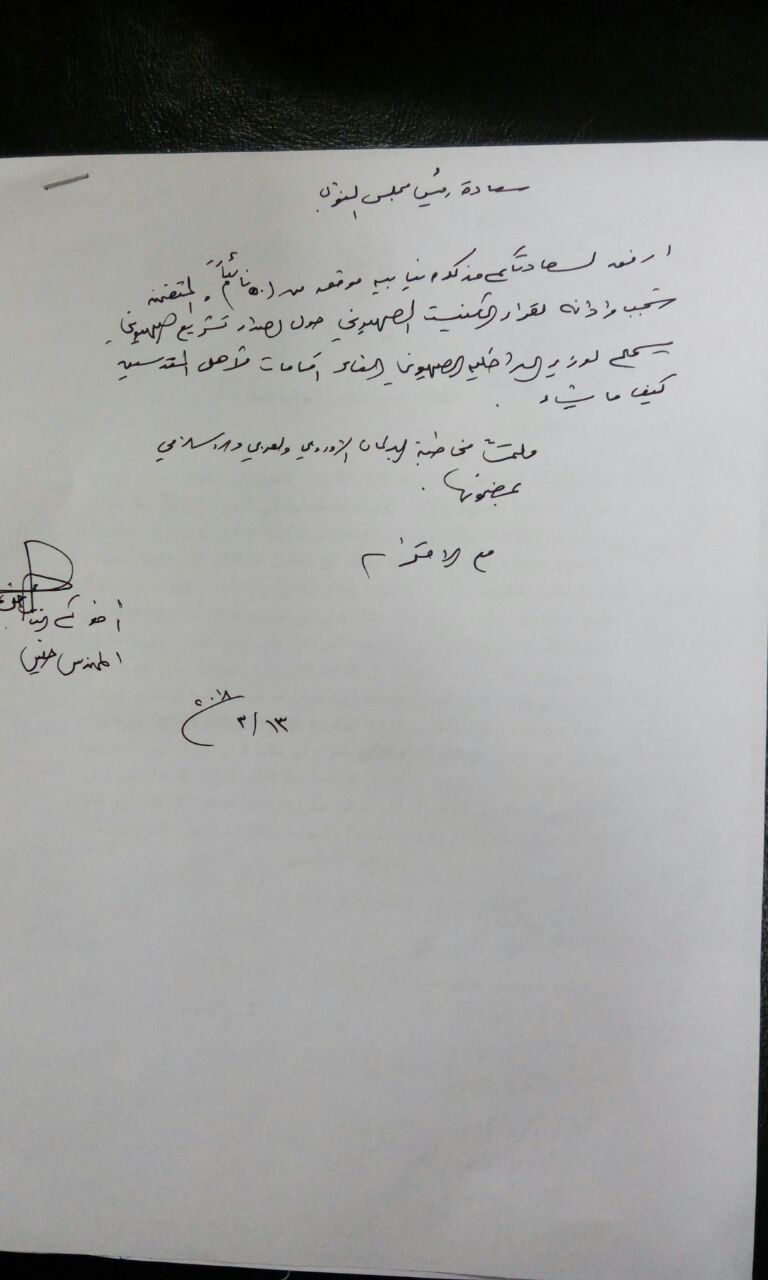 سعادة رئيس مجلس النواب
ارفق لسعادتكم مذكرة نيابية موقعة من (٥٠) نائباً والمتضمنة
شجب وادانة لقرار الكنيست الصهيوني حول اصدار تشريع صهيوني
يسمح لوزير الداخلية الصهيوني الغاء اقامات لأهل المقدسيين
كيف ما يشاء .
ملتمساً مخاطبة البرلمان الاوروبي والعربي والاسلامي
بمضمونها .
مع الاحترام
المهندس
٢٠١٨
٣/١٣